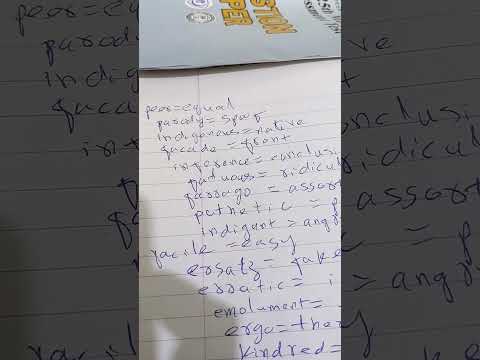 STION
PPER
peer=equal
parody= spoof
indigenous=native
facade = front
inference=conclusi
fatuous= ridicul
farrago = assort
pathetic = p
indigant = angr
facile = easy
ersatz = fake
erratic = i
emolument =
ergo=ther
kindred=